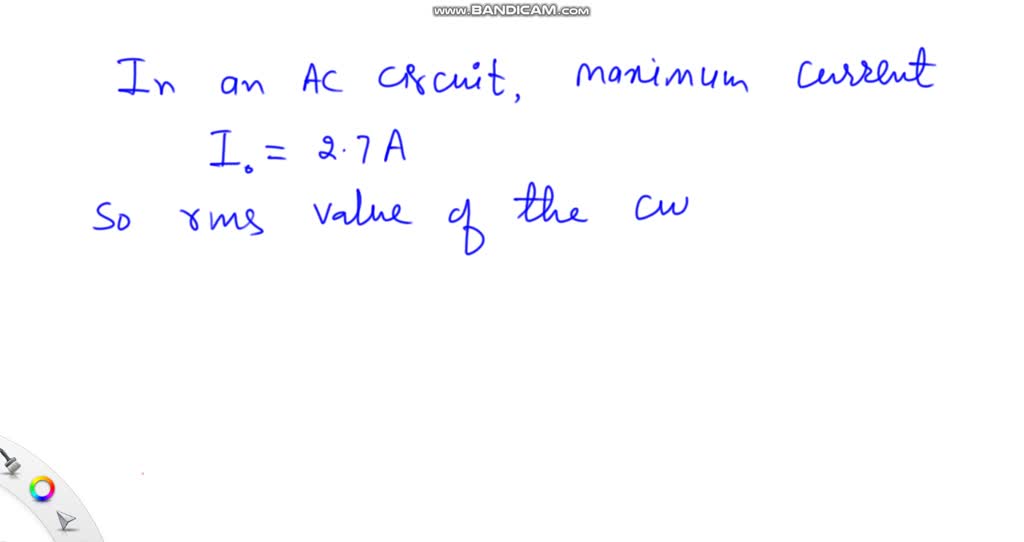 www.BANDICAM.com
In an AC circuit, maximum current
I₀ = 2.7 A
So rms value of the cu